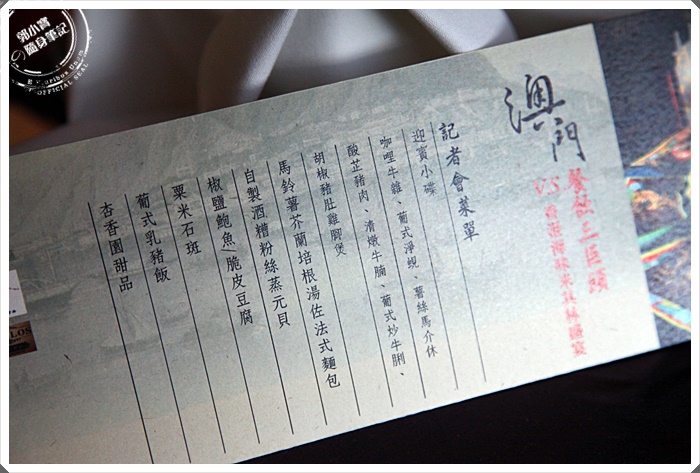 澳門
餐飲三巨頭
V.S.香港海味米其林盛宴
記者會菜單
迎賓小碟
咖哩牛雜、葡式淨蜆、薯絲馬介休
酸芷豬肉、清燉牛腩、葡式炒牛脷、
胡椒豬肚雞腳煲
馬鈴薯芥蘭培根湯佐法式麵包
自製酒糟粉絲蒸元貝
椒鹽鮑魚/脆皮豆腐
粟米石斑
葡式乳豬飯
杏香園甜品
郭小寶
隨身筆記
OFFICIAL SEAL
LOS